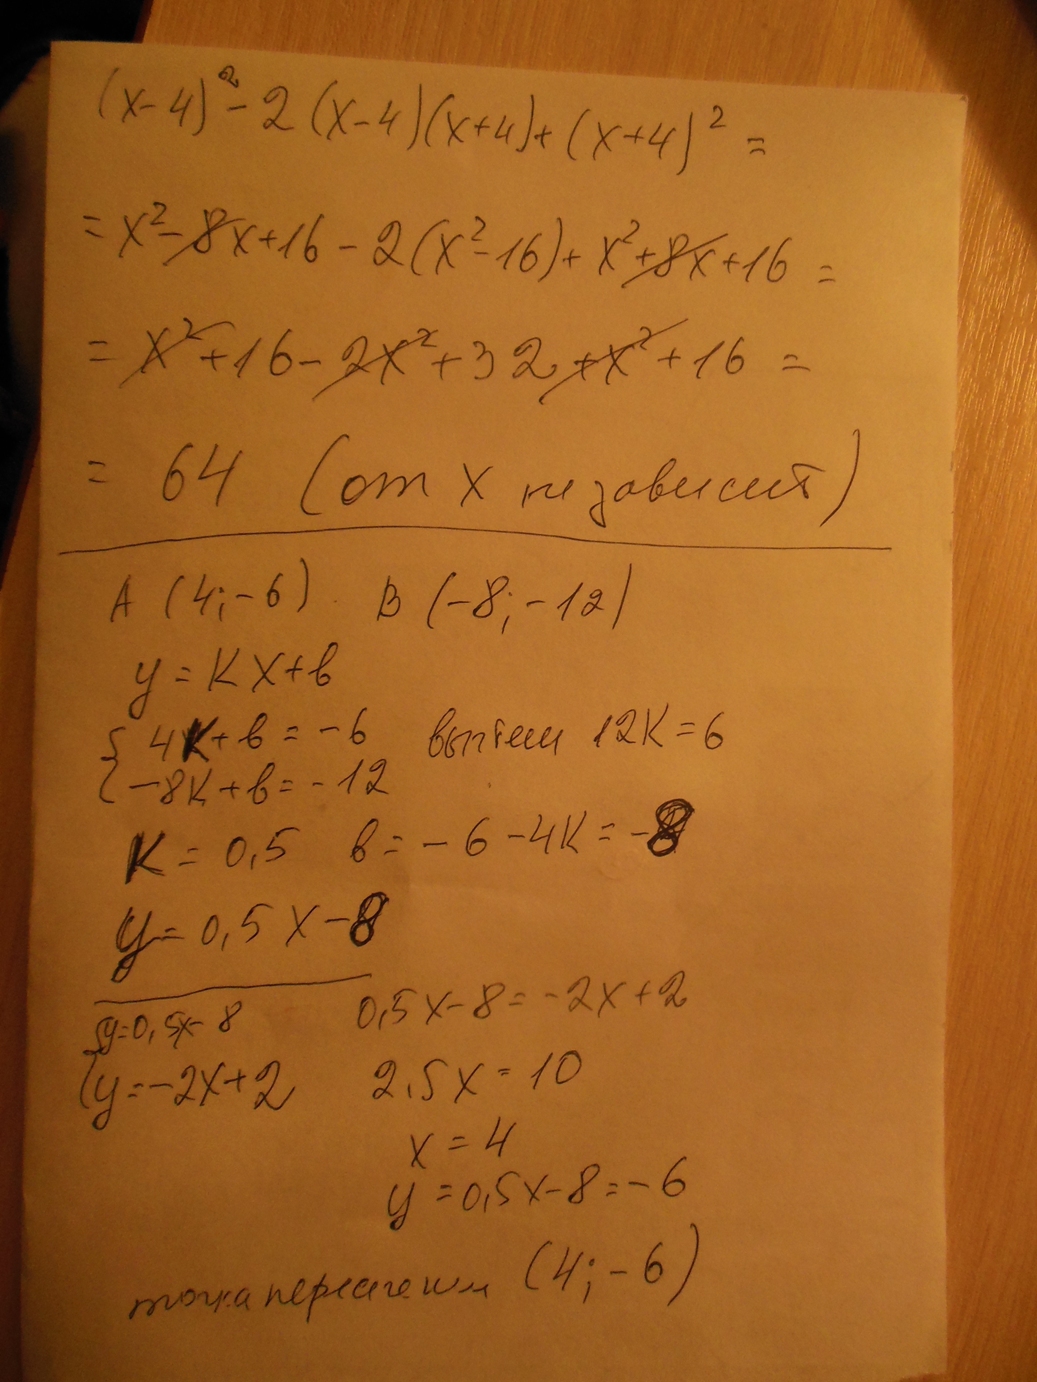 (x-4)² - 2(x-4)(x+4) + (x+4)² =
= x² - 8x + 16 - 2(x² - 16) + x² + 8x + 16 =
= x² + 16 - 2x² + 32 + x² + 16 =
= 64 (от x не зависит)
A (4; -6) B (-8; -12)
y = kx + в
{ 4k + в = -6 вычтем 12k = 6
{ -8k + в = -12
k = 0,5 в = -6 - 4k = -8
y = 0,5x - 8
{ y = 0,5x - 8 0,5x - 8 = -2x + 2
{ y = -2x + 2 2,5x = 10
x = 4
y = 0,5x - 8 = -6
точка пересечения (4; -6)